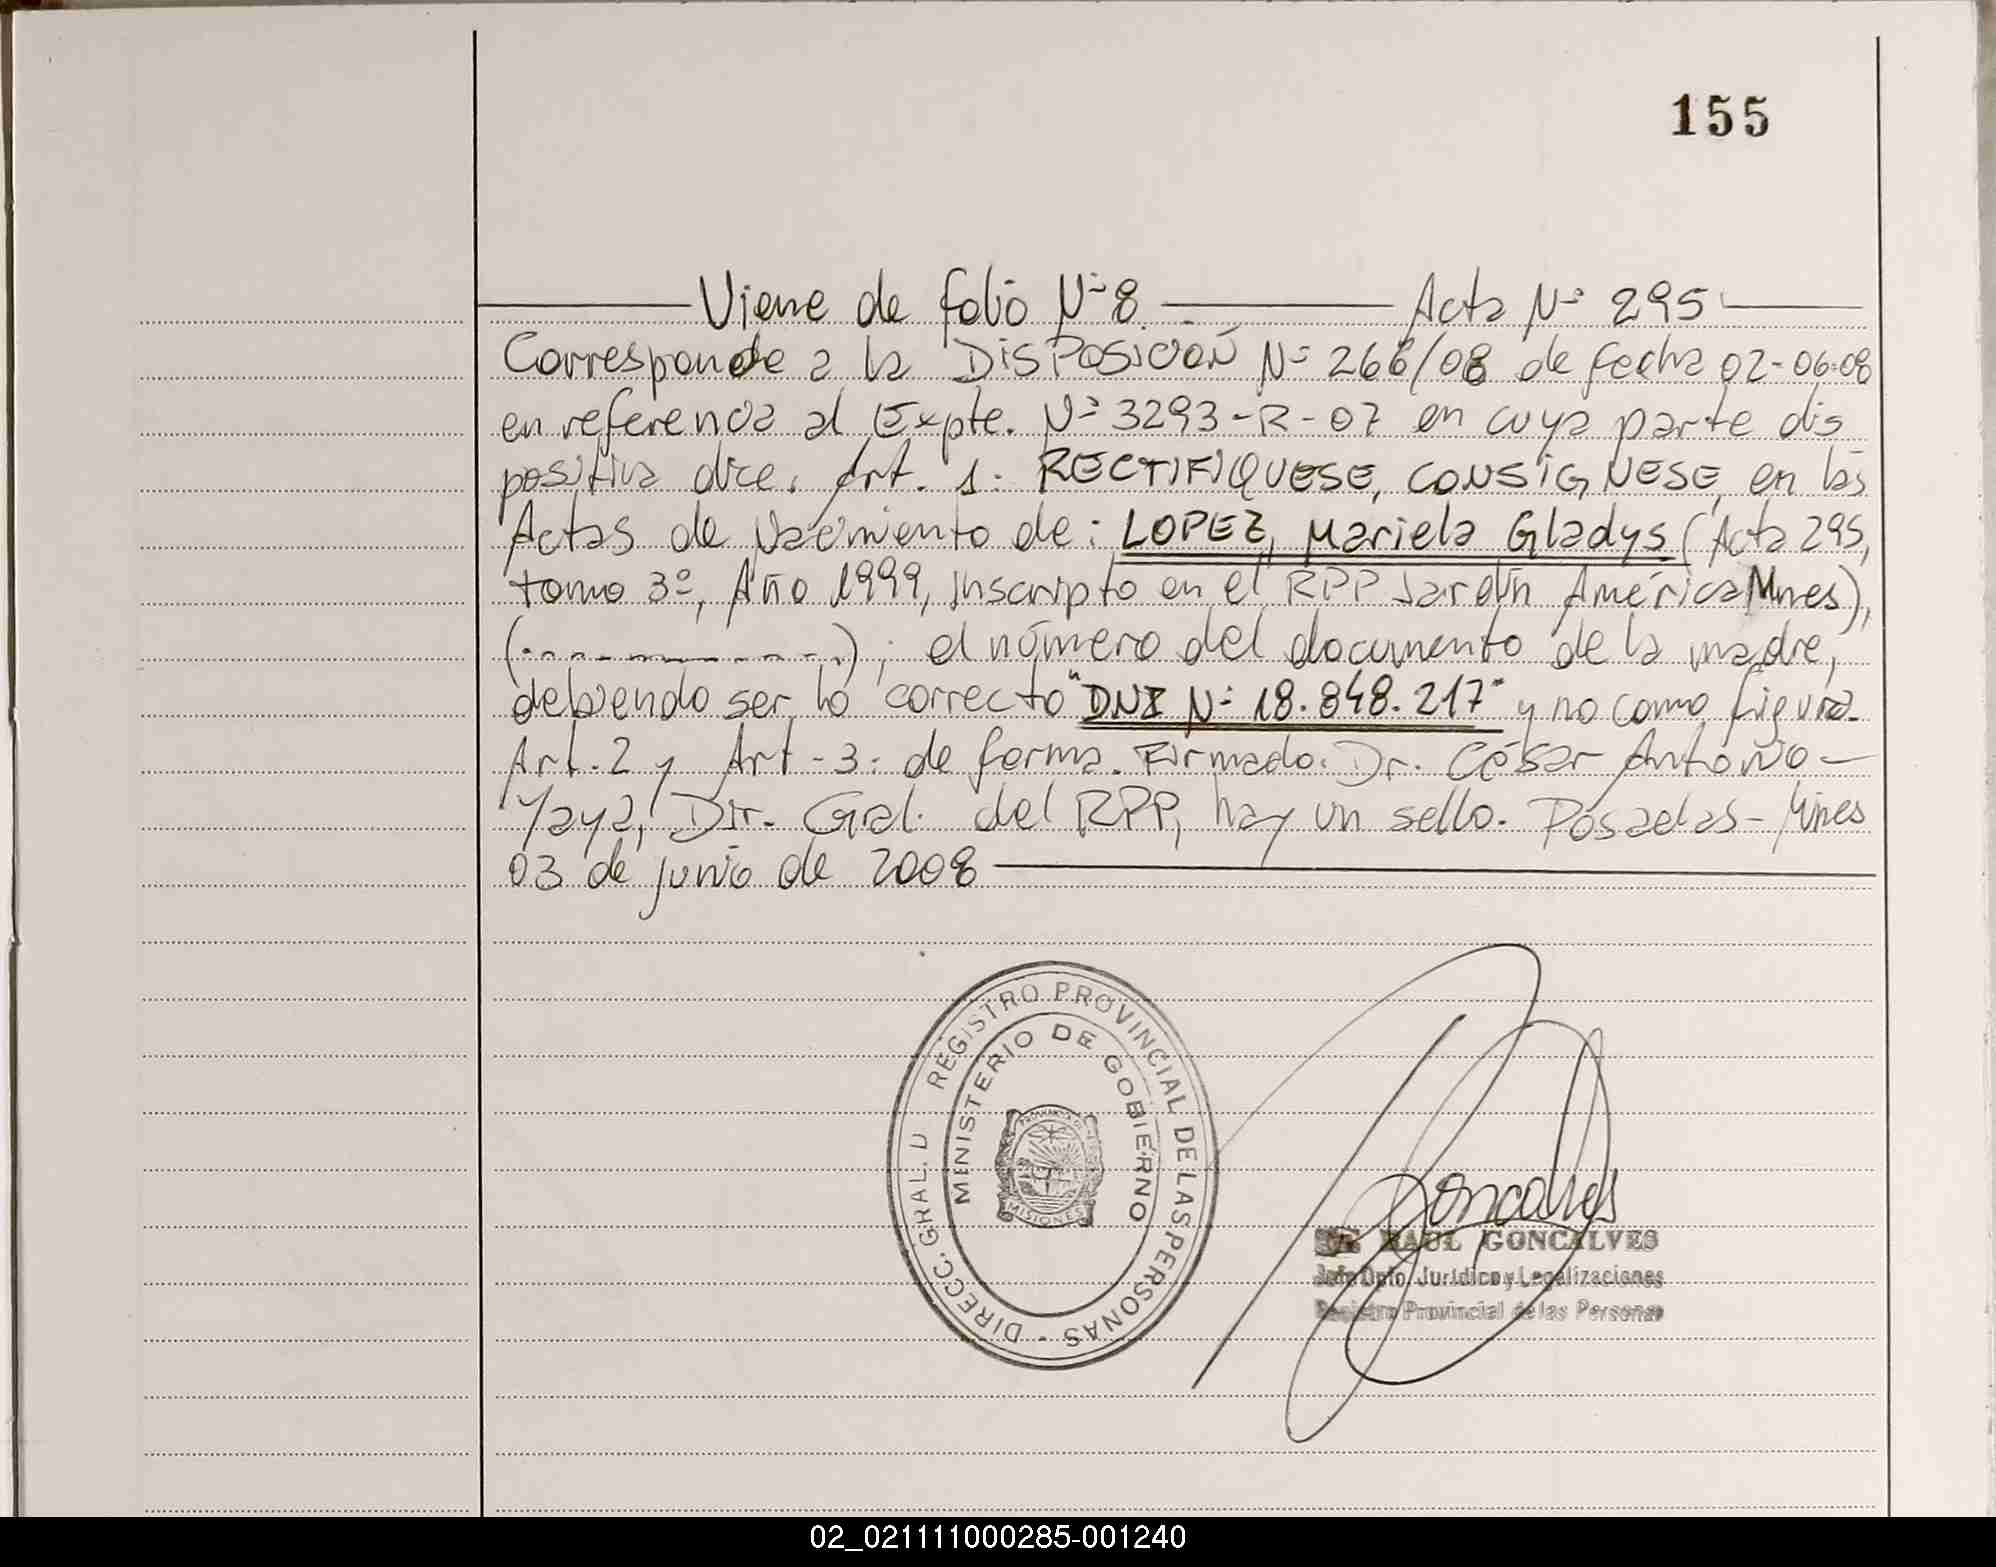 155
Viene de folio Nº 8 Acta Nº 295
Corresponde a la DISPOSICION Nº 266/08 de fecha 02-06-08
en referencia al Expte. Nº 3293-R-07 en cuya parte dis
positiva dice. Art. 1: RECTIFIQUESE, CONSIGNESE, en las
Actas de Nacimiento de: LOPEZ, Mariela Gladys (Acta 295,
tomo 3º, Año 1999, inscripto en el RPP Jardín América Mnes),
(............); el número del documento de la madre,
debiendo ser lo correcto "DNI Nº 18.848.217" y no como figura.
Art. 2 y Art-3: de forma. Firmado: Dr. César Antonio
Yaya, Dir. Gral. del RPP, hay un sello. Posadas-Mnes
03 de junio de 2008
DIRECC. GRAL. D REGISTRO PROVINCIAL DE LAS PERSONAS -
MINISTERIO DE GOBIERNO
PROVINCIA DE
MISIONES
Goncalves
RAUL GONCALVES
Jefe Dpto. Jurídico y Legalizaciones
Registro Provincial de las Personas
02_021111000285-001240